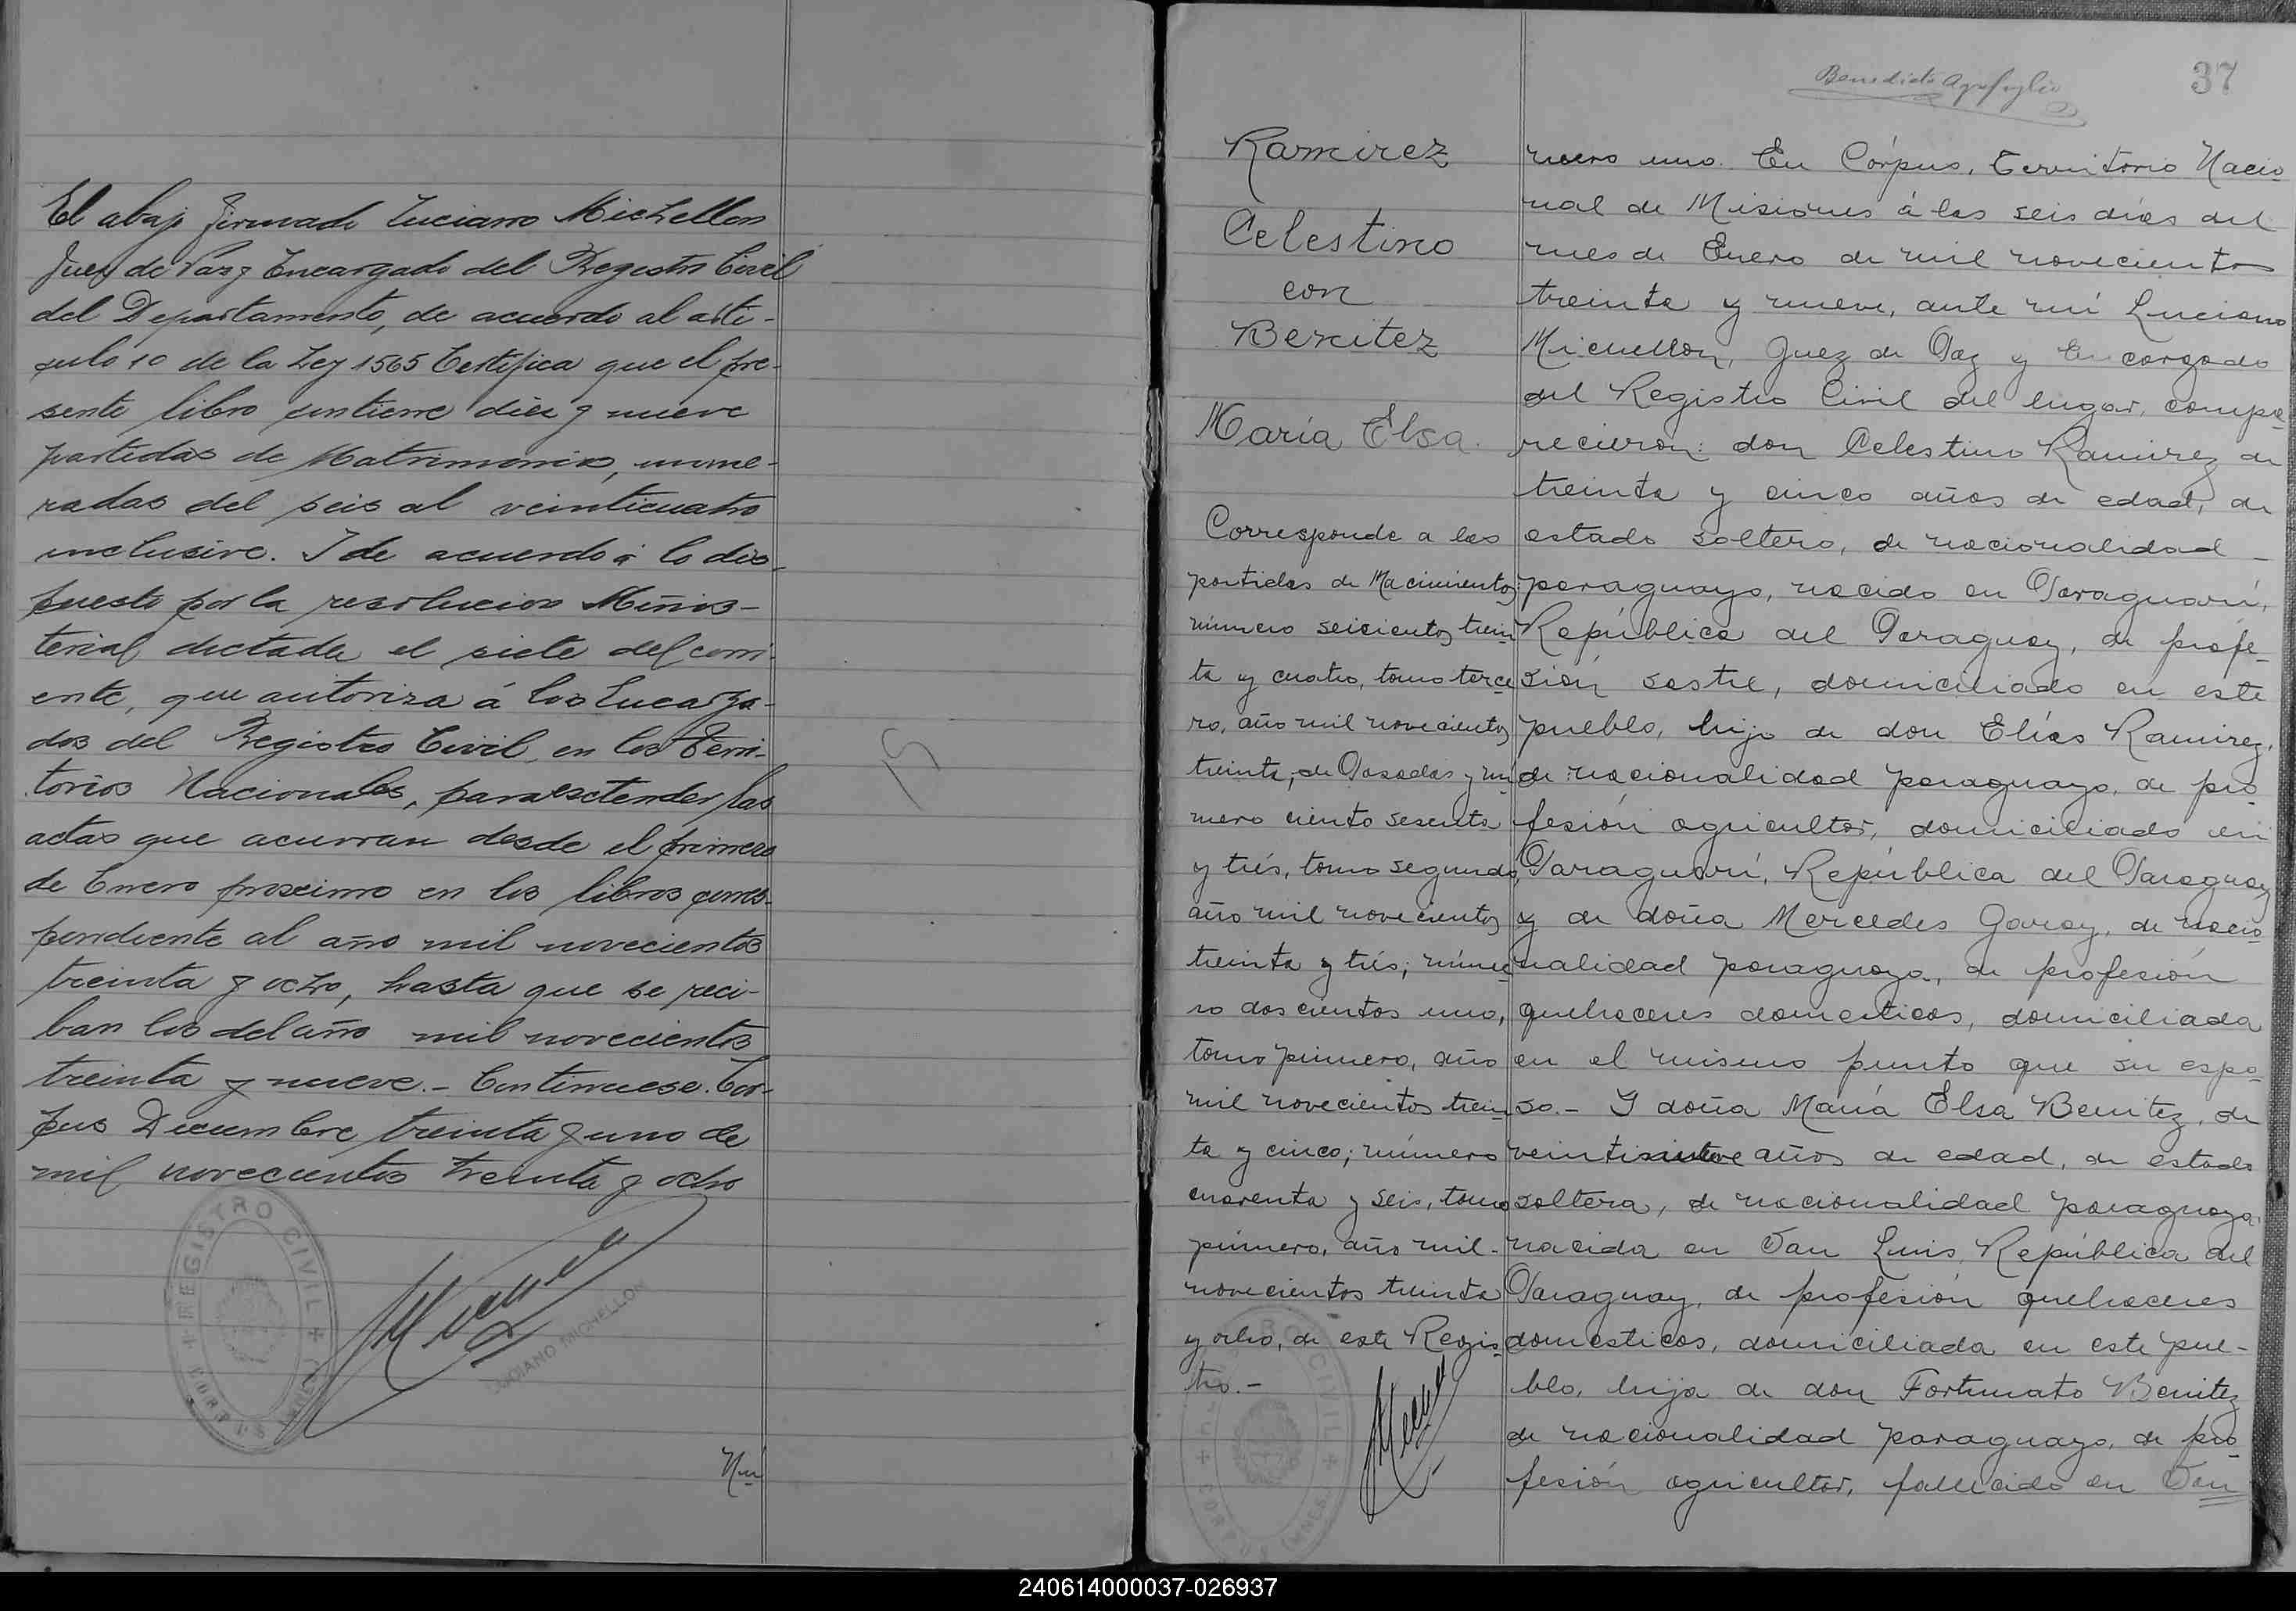 El abajo firmado Luciano Michellon
Juez de Paz y Encargado del Registro Civil
del Departamento, de acuerdo al arti-
culo 10 de la Ley 1565 Certifica que el pre-
sente libro contiene diez y nueve
partidas de Matrimonios, nume-
radas del seis al veinticuatro
inclusive. I de acuerdo á lo dis-
puesto por la resolucion Minis-
terial dictada el siete del corri-
ente, que autoriza á los Encarga-
dos del Registro Civil, en los Terri-
torios Nacionales, para extender las
actas que acurran desde el primero
de Enero proximo en los libros corres-
pondiente al año mil novecientos
treinta y ocho, hasta que se reci-
ban los del año mil novecientos
treinta y nueve.- Continuese. Cor-
pus Diciembre treinta y uno de
mil novecientos treinta y ocho
REGISTRO CIVIL
CORPUS (MNES)
LUCIANO MICHELLON
Nú
15
37
Ramirez
Celestino
con
Benitez
María Elsa.
Corresponde a las
partidas de Nacimientos:
número seicientos trein
ta y cuatro, tomo terce
ro, año mil novecientos
treinta; de Posadas y nú
mero ciento sesenta
y trés, tomo segundo,
año mil novecientos
treinta y trés; núme
ro doscientos uno,
tomo primero, año
mil novecientos trein
ta y cinco; número
cuarenta y seis, tomo
primero, año mil-
novecientos treinta
y ocho, de este Regis
tro.-
CIVIL
CORPUS (MNES)
mero uno. En Córpus, Territorio Nacio
nal de Misiones á los seis días del
mes de Enero de mil novecientos
treinta y nueve, ante mí Luciano
Michellon, Juez de Paz y Encargado
del Registro Civil del lugar, compa
recieron: don Celestino Ramirez de
treinta y cinco años de edad, de
estado soltero, de nacionalidad -
paraguayo, nacido en Paraguarí,
República del Paraguay, de profe-
sión sastre, domiciliado en este
pueblo, hijo de don Elías Ramirez,
de nacionalidad paraguayo, de pro
fesión agricultor, domiciliado en
Paraguarí, República del Paraguay
y de doña Mercedes Garay, de nacio
nalidad paraguaya, de profesión
quehaceres domesticos, domiciliada
en el mismo punto que su espo
so.- I doña María Elsa Benitez, de
años de edad, de estado
soltera, de nacionalidad paraguaya,
nacida en San Luis, República del
Paraguay, de profesión quehaceres
domesticos, domiciliada en este pue-
blo, hija de don Fortunato Benitez
de nacionalidad paraguayo, de pro
fesión agricultor, fallecido en San
240614000037-026937